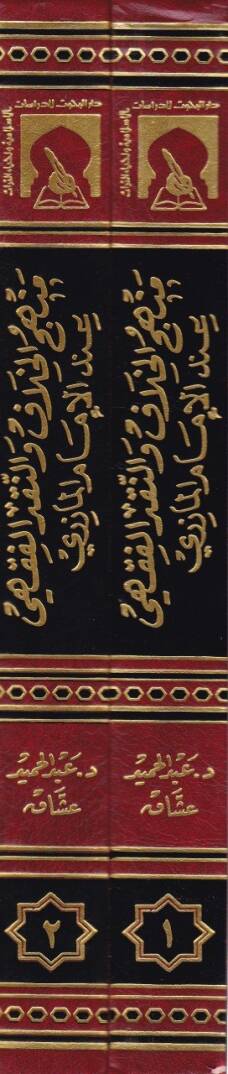 دار البحوث للدراسات
الإسلامية وإحياء التراث
منهج الخلاف والنقد الفقهي
عند الإمام المازري
د. عبد الحميد
عشاق
١
دار البحوث للدراسات
الإسلامية وإحياء التراث
منهج الخلاف والنقد الفقهي
عند الإمام المازري
د. عبد الحميد
عشاق
٢